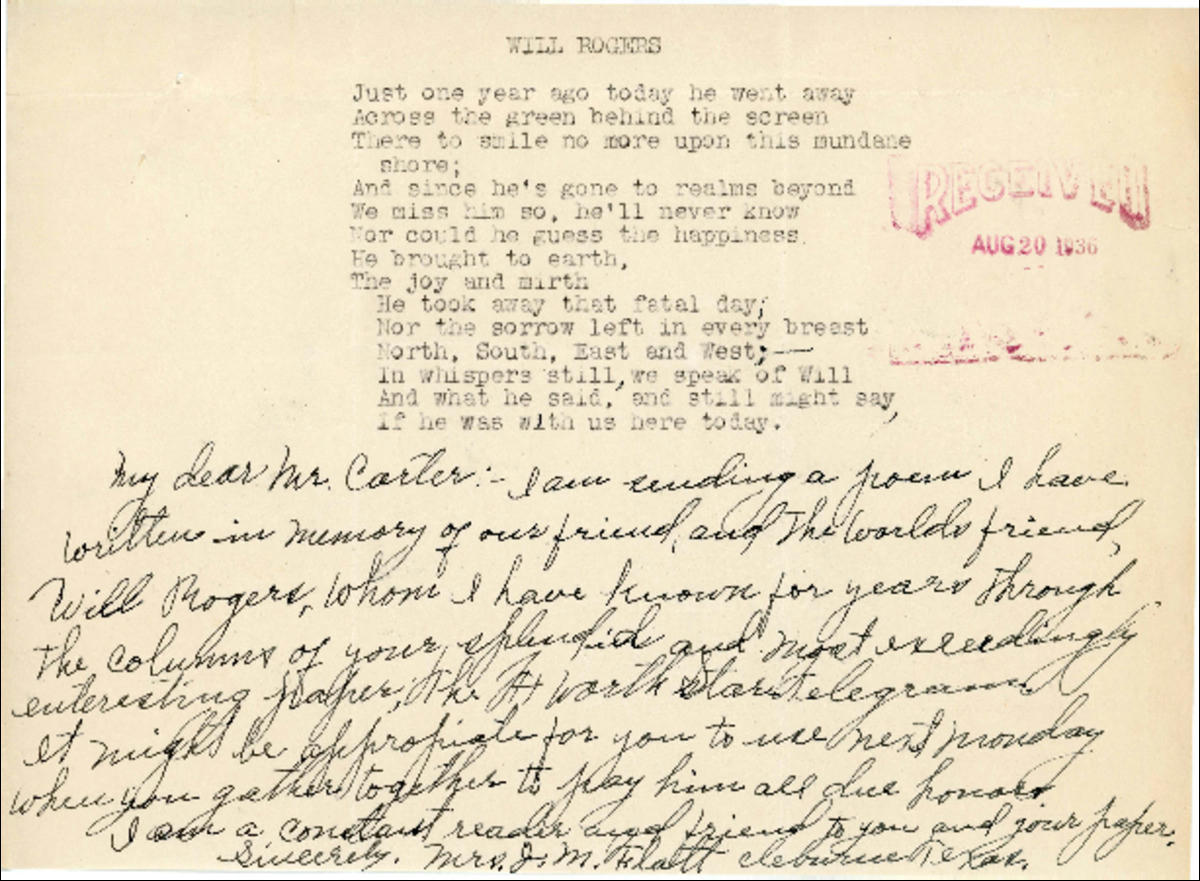 WILL ROGERS
Just one year ago today he went away
Across the green behind the screen
There to smile no more upon this mundane
shore;
And since he's gone to realms beyond
We miss him so, he'll never know
Nor could he guess the happiness
He brought to earth,
The joy and mirth
He took away that fatal day;
Nor the sorrow left in every breast
North, South, East and West;—
In whispers still, we speak of Will
And what he said, and still might say,
If he was with us here today.
RECEIVED
AUG 20 1936
My dear Mr. Carter:- I am sending a poem I have
written in memory of our friend, and the worlds friend,
Will Rogers, whom I have known for years through
the columns of your splendid and most exceedingly
enteresting paper, The Ft Worth Star Telegram.
It might be appropiate for you to use next Monday
when you gather together to pay him all due honors
I am a constant reader and friend to you and your paper.
Sincerely. Mrs. J. M. Flatt Cleburne Texas.